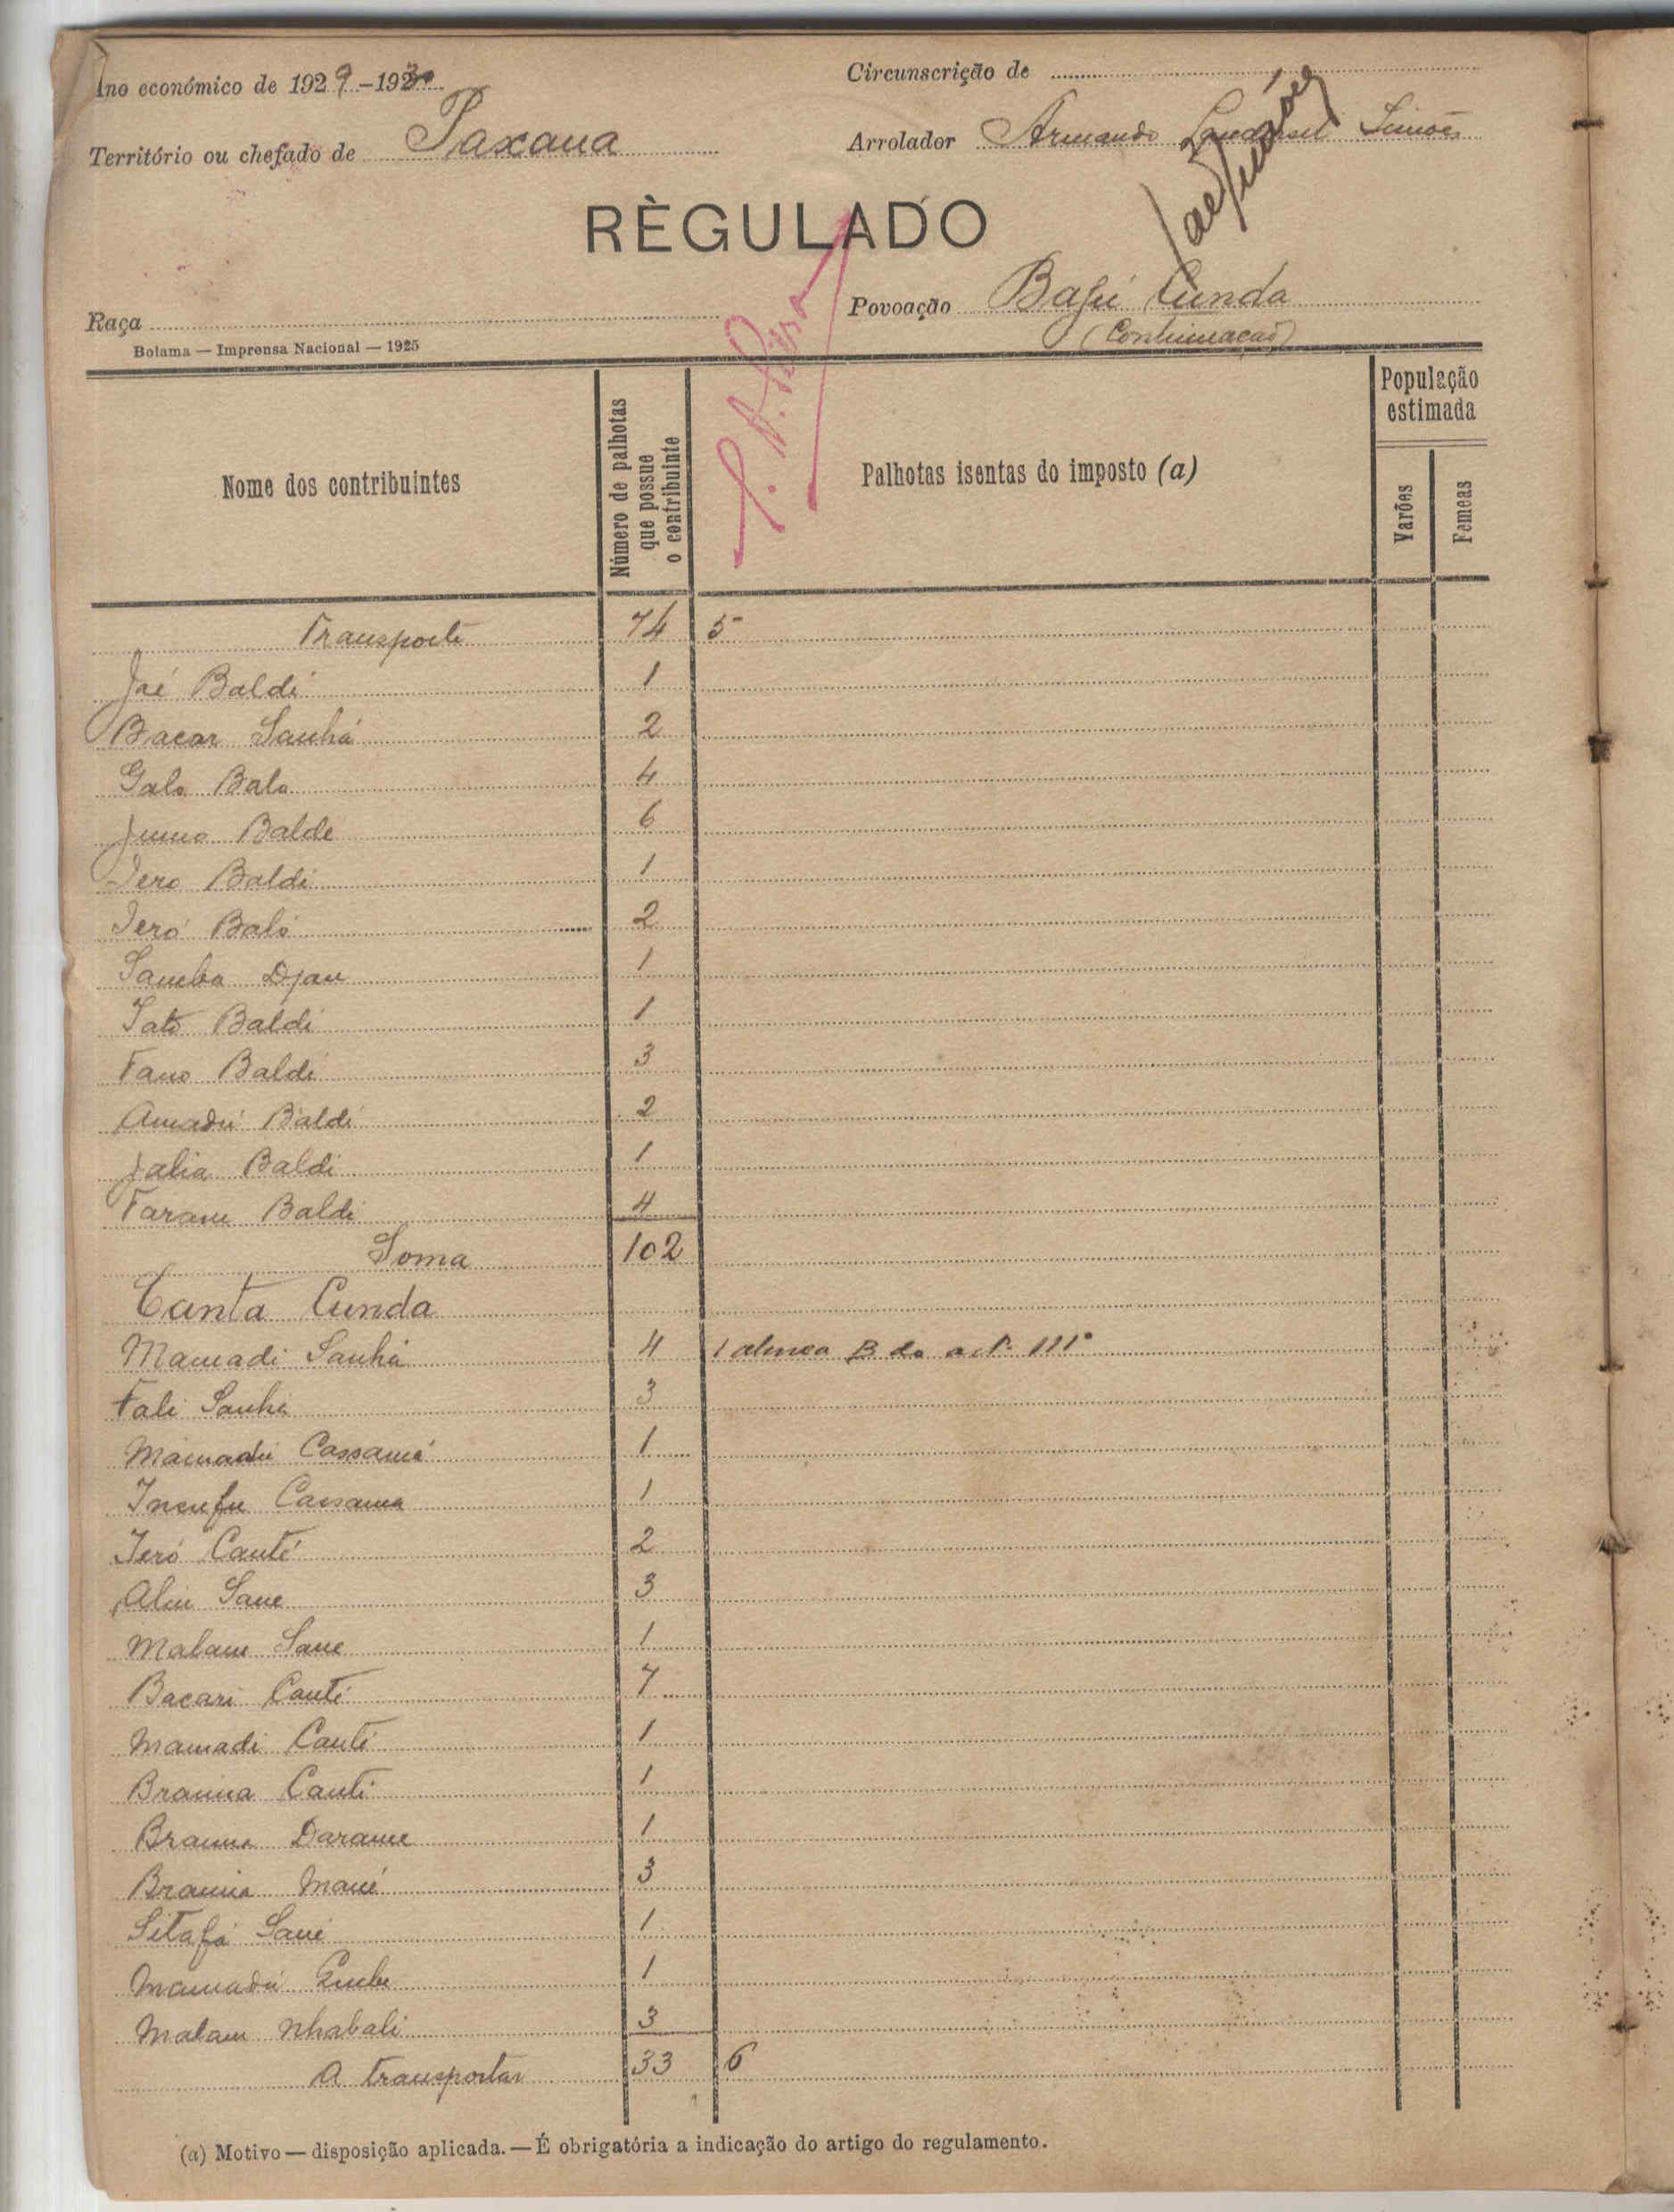 Ano económico de 1929-1930
Circunscrição de
Território ou chefado de Paxana
Arrolador Armando Simões
RÈGULADO
Raça
Povoação Bafú Cunda
(Continuacão)
Bolama — Imprensa Nacional — 1925
Nome dos contribuintes
Número de palhotas que possue o contribuinte
Palhotas isentas do imposto (a)
População estimada
Varões
Femeas
Transporte 74 5
Jaé Baldé 1
Bacar Sanhá 2
Galo Balo 4
Juma Baldé 6
Iero Baldé 1
Ieró Baló 2
Samba Djau 1
Iato Baldé 1
Fano Baldé 3
Amadú Baldé 2
Jalia Baldi 1
Faram Baldi 4
Soma 102
Canta Cunda
Mamadi Sanhá 4 1 alinea B do art.º 111º
Fali Sanhá 3
Mamadu Cassamá 1
Incufu Cassama 1
Ieró Canté 2
Aliu Sane 3
Malam Sane 1
Bacari Canté 7
Mamadi Canté 1
Braima Canti 1
Braima Darame 1
Braima Mané 3
Sitafá Sané 1
Mamadú 1
Malam Nhabali 3
A transportar 33 6
(a) Motivo — disposição aplicada. — É obrigatória a indicação do artigo do regulamento.